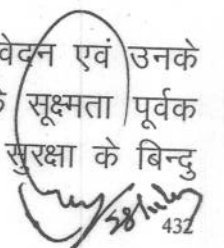 वेदन एवं उनके
सूक्ष्मता पूर्वक
सुरक्षा के बिन्दु
432